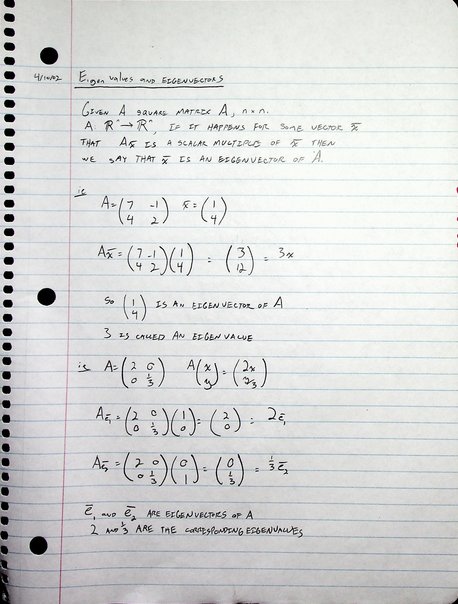 4/10/02 Eigen values and EIGENVECTORS
GIVEN A SQUARE MATRIX A, n x n.
A ℝⁿ → ℝⁿ, IF IT HAPPENS FOR SOME VECTOR x̄
THAT Ax̄ IS A SCALAR MULTIPLE OF x̄ THEN
WE SAY THAT x̄ IS AN EIGENVECTOR OF A.
ie A = (7 -1; 4 2) x̄ = (1; 4)
Ax̄ = (7 -1; 4 2)(1; 4) = (3; 12) = 3x
SO (1; 4) IS AN EIGENVECTOR OF A
3 IS CALLED AN EIGENVALUE
ie A = (2 0; 0 1/3) A(x; y) = (2x; y/3)
Aē₁ = (2 0; 0 1/3)(1; 0) = (2; 0) = 2ē₁
Aē₂ = (2 0; 0 1/3)(0; 1) = (0; 1/3) = 1/3 ē₂
ē₁ and ē₂ ARE EIGENVECTORS OF A
2 AND 1/3 ARE THE CORRESPONDING EIGENVALUES